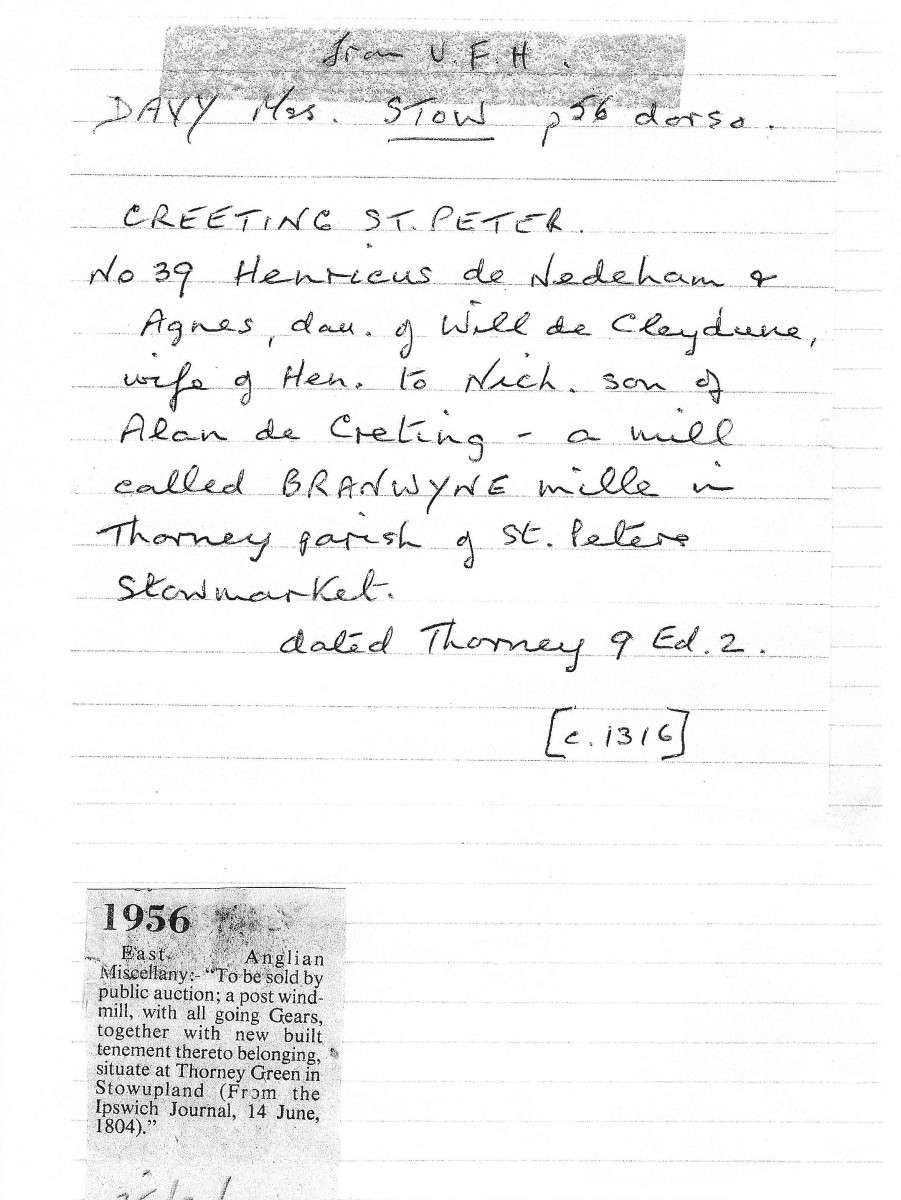 from U.F.H.
DAVY Mss. STOW p56 dorso.
CREETING ST. PETER.
No 39 Henricus de Nedeham &
Agnes, dau. of Will de Cleydune,
wife of Hen. to Nich. son of
Alan de Creting - a mill
called BRANWYNE mille in
Thorney parish of St. Peters
Stowmarket.
dated Thorney 9 Ed. 2.
[c. 1316]
1956
East Anglian
Miscellany:- “To be sold by
public auction; a post wind-
mill, with all going Gears,
together with new built
tenement thereto belonging,
situate at Thorney Green in
Stowupland (From the
Ipswich Journal, 14 June,
1804).”